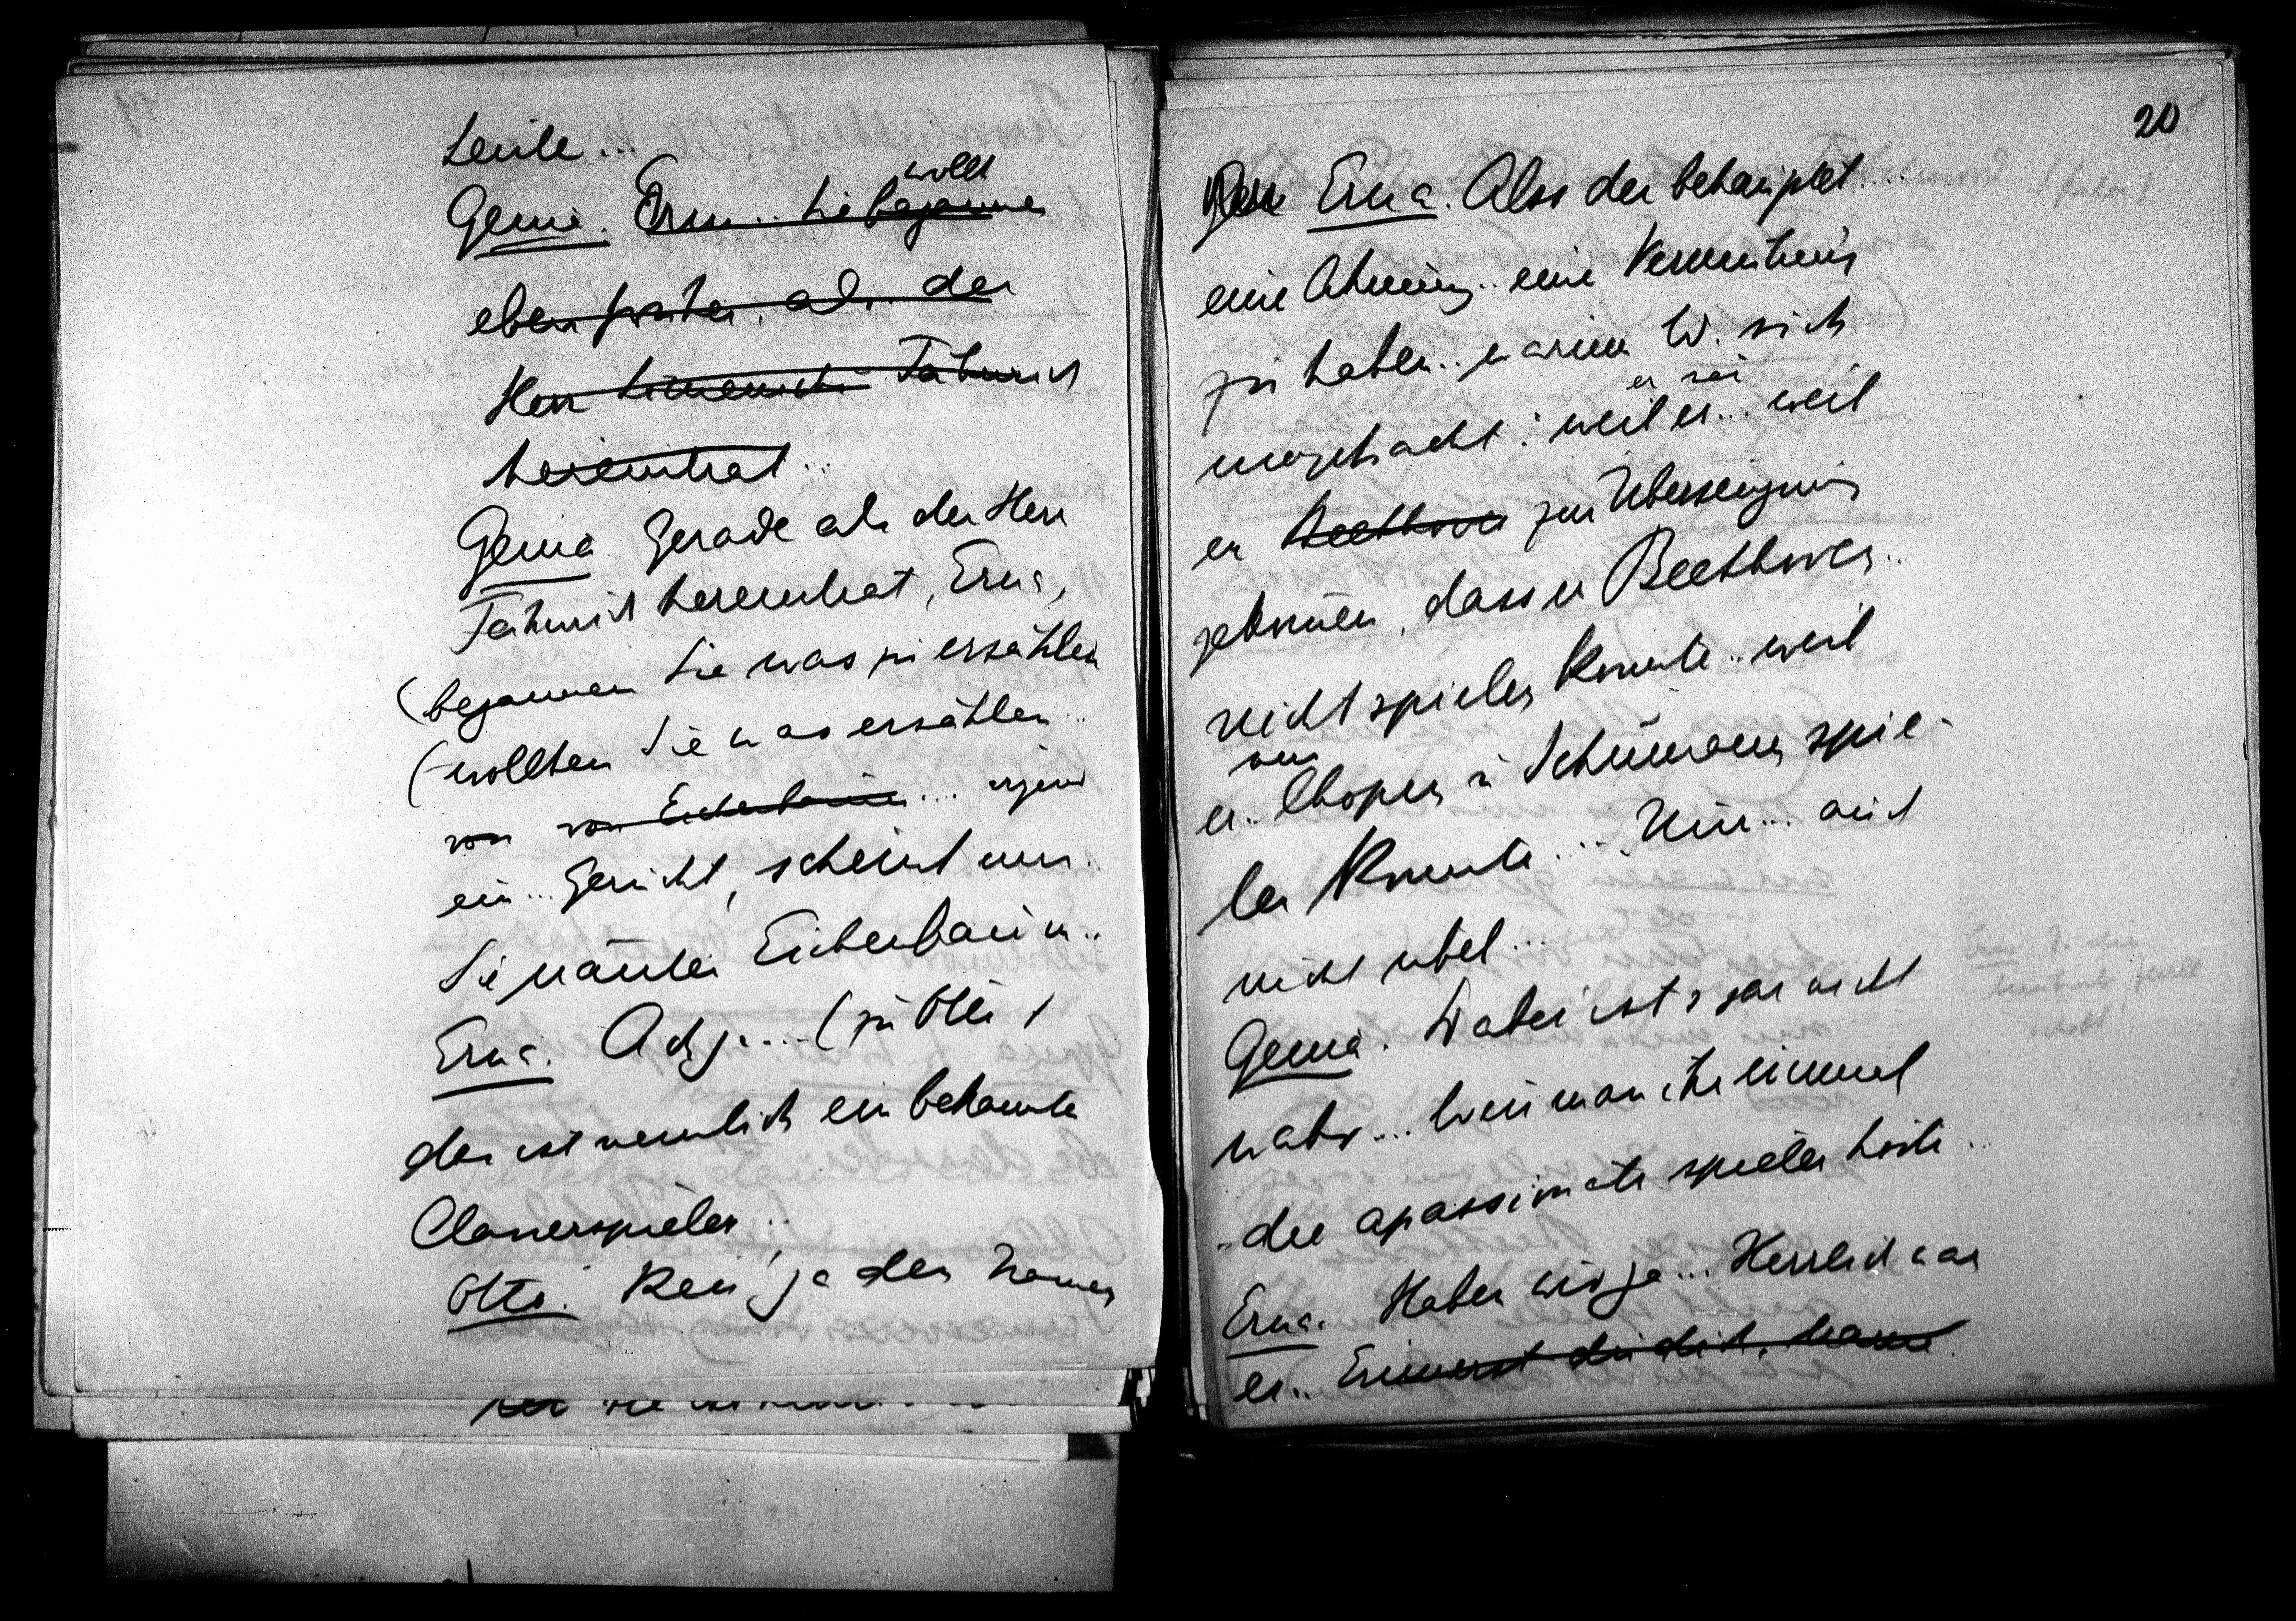 Leute...
Genia. Erna.. Sie begannen wollt
eben früher, als der
Herr Fähnrich
hereintrat...
Genia Gerade als der Herr
Fähnrich hereintrat, Erna,
(begannen Sie was zu erzählen
(wollten Sie was erzählen..
von von Eichenbaum.... irgend
ein... Gerücht, scheint mir.
Sie nannten Eichenbaum..
Erna. Ach ja.... (zu Otto)
der ist nemlich ein bekannter
Clavierspieler..
Otto. Kenn ja den Namen
20
Erna. Also der behauptet....
eine Ahnung.. eine Vermuthung
zu haben.. warum W. sich
umgebracht: weil er... weil er sei
er Beethoven zur Überzeugung
gekommen, dass er Beethoven..
nicht spielen konnte.. weil
er.. nur Chopin u Schumann spie-
len konnte.... Nun... auch
nicht übel...
Genia. Dabei ist's gar nicht
wahr... Wenn man ihn einmal
die apassionata spielen hörte..
Erna. Haben wir ja... Herrlich war
er.. Erinnerst du dich, Mama